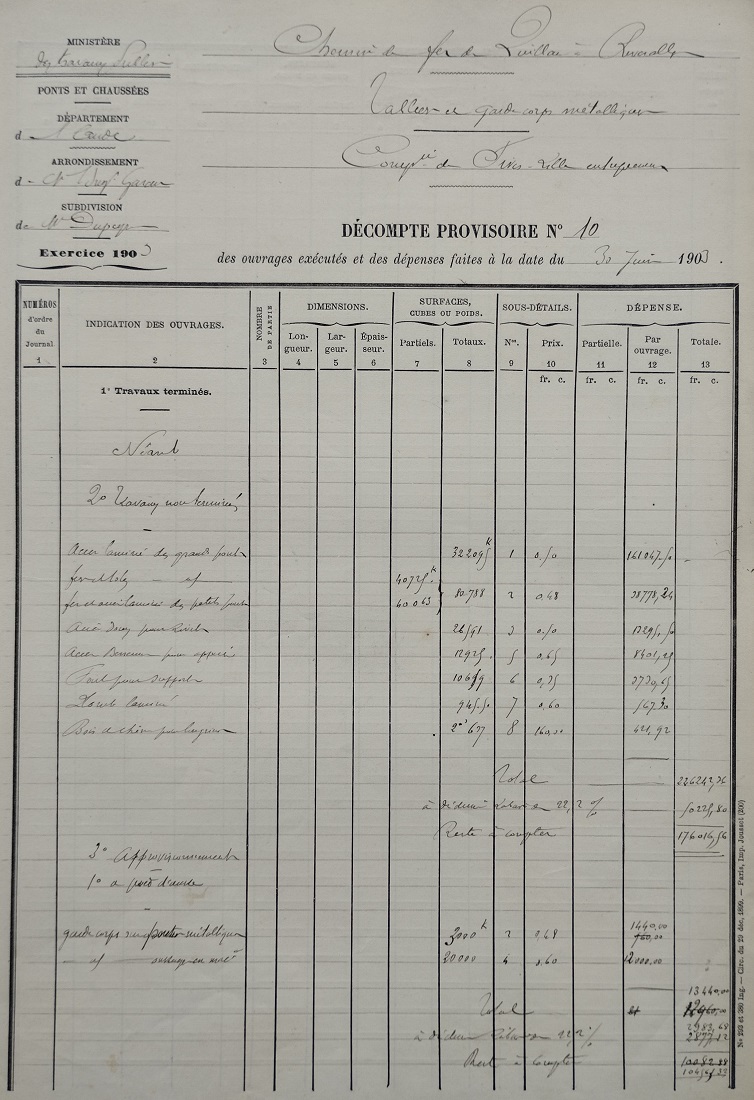 MINISTÈRE
des travaux Publics
PONTS ET CHAUSSÉES
DÉPARTEMENT
d l'Aude
ARRONDISSEMENT
d
SUBDIVISION
de Mr
Exercice 1903
Chemin de fer de Quillan à Rivesaltes
Tabliers et garde corps métalliques
Compie de Fives-Lille entrepreneur
DÉCOMPTE PROVISOIRE No 10
des ouvrages exécutés et des dépenses faites à la date du 30 Juin 1903.
NUMÉROS d'ordre du Journal 1
INDICATION DES OUVRAGES. 2
NOMBRE DE PARTIE 3
DIMENSIONS.
Longueur. 4
Largeur. 5
Épaisseur. 6
SURFACES, CUBES OU POIDS.
Partiels. 7
Totaux. 8
SOUS-DÉTAILS.
Nos. 9
Prix. 10
DÉPENSE.
Partielle. 11
Par ouvrage. 12
Totale. 13
fr. c. fr. c. fr. c. fr. c.
1° Travaux terminés.
Néant
2° Travaux non terminés
Acier laminé des grands ponts 322095 k 1 0,50 161047.50
fers et tôles — id — 40725 k
fers et acier laminés des petits ponts 40063 80788 2 0,48 38778,24
Acier doux pour rivets 26591 3 0,50 13295,50
Acier pour appuis 12925 5 0,65 8401,25
Fonte pour supports 10659 6 0,35 3730,65
Plomb laminé 945.50 7 0,60 567.30
Bois de chêne pour 2 637 8 160,00 421,92
Total 226242,36
à déduire Rabais de 22,2 % 50225,80
Reste à compter 176016,56
3° Approvisionnements
1° à pied d'œuvre
garde corps sur métallique 3000 k 2 0,48 1440,00
— id — ouvrages en 20000 4 0,60 12000.00
13440,00
Total
2983,68
à déduire Rabais de 22,2 %
Reste à compter 10082 88
10456 32
No 293 et 380 Ing. — Circ. du 29 déc. 1899. — Paris, Imp. Jousset (200)